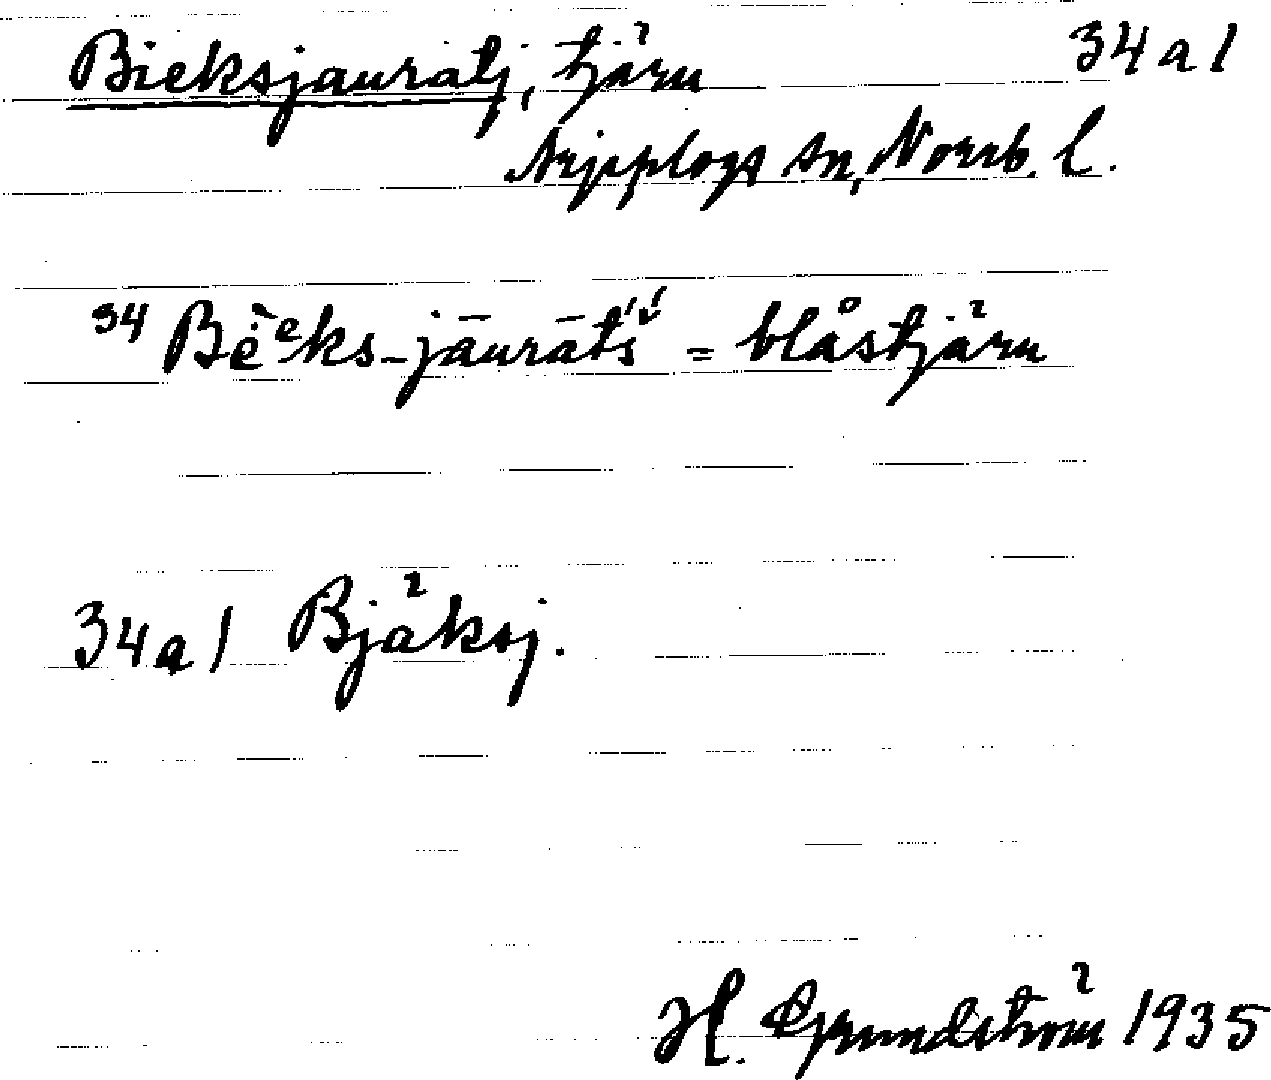 Bieksjauratj, tjärn 34 a 1
Arjeplogs sn, Norrb. l.
34 Bė̀ₑks-jāurāt́š́ = blåstjärn
34 a 1 Bjäksj.
H. Grundström 1935